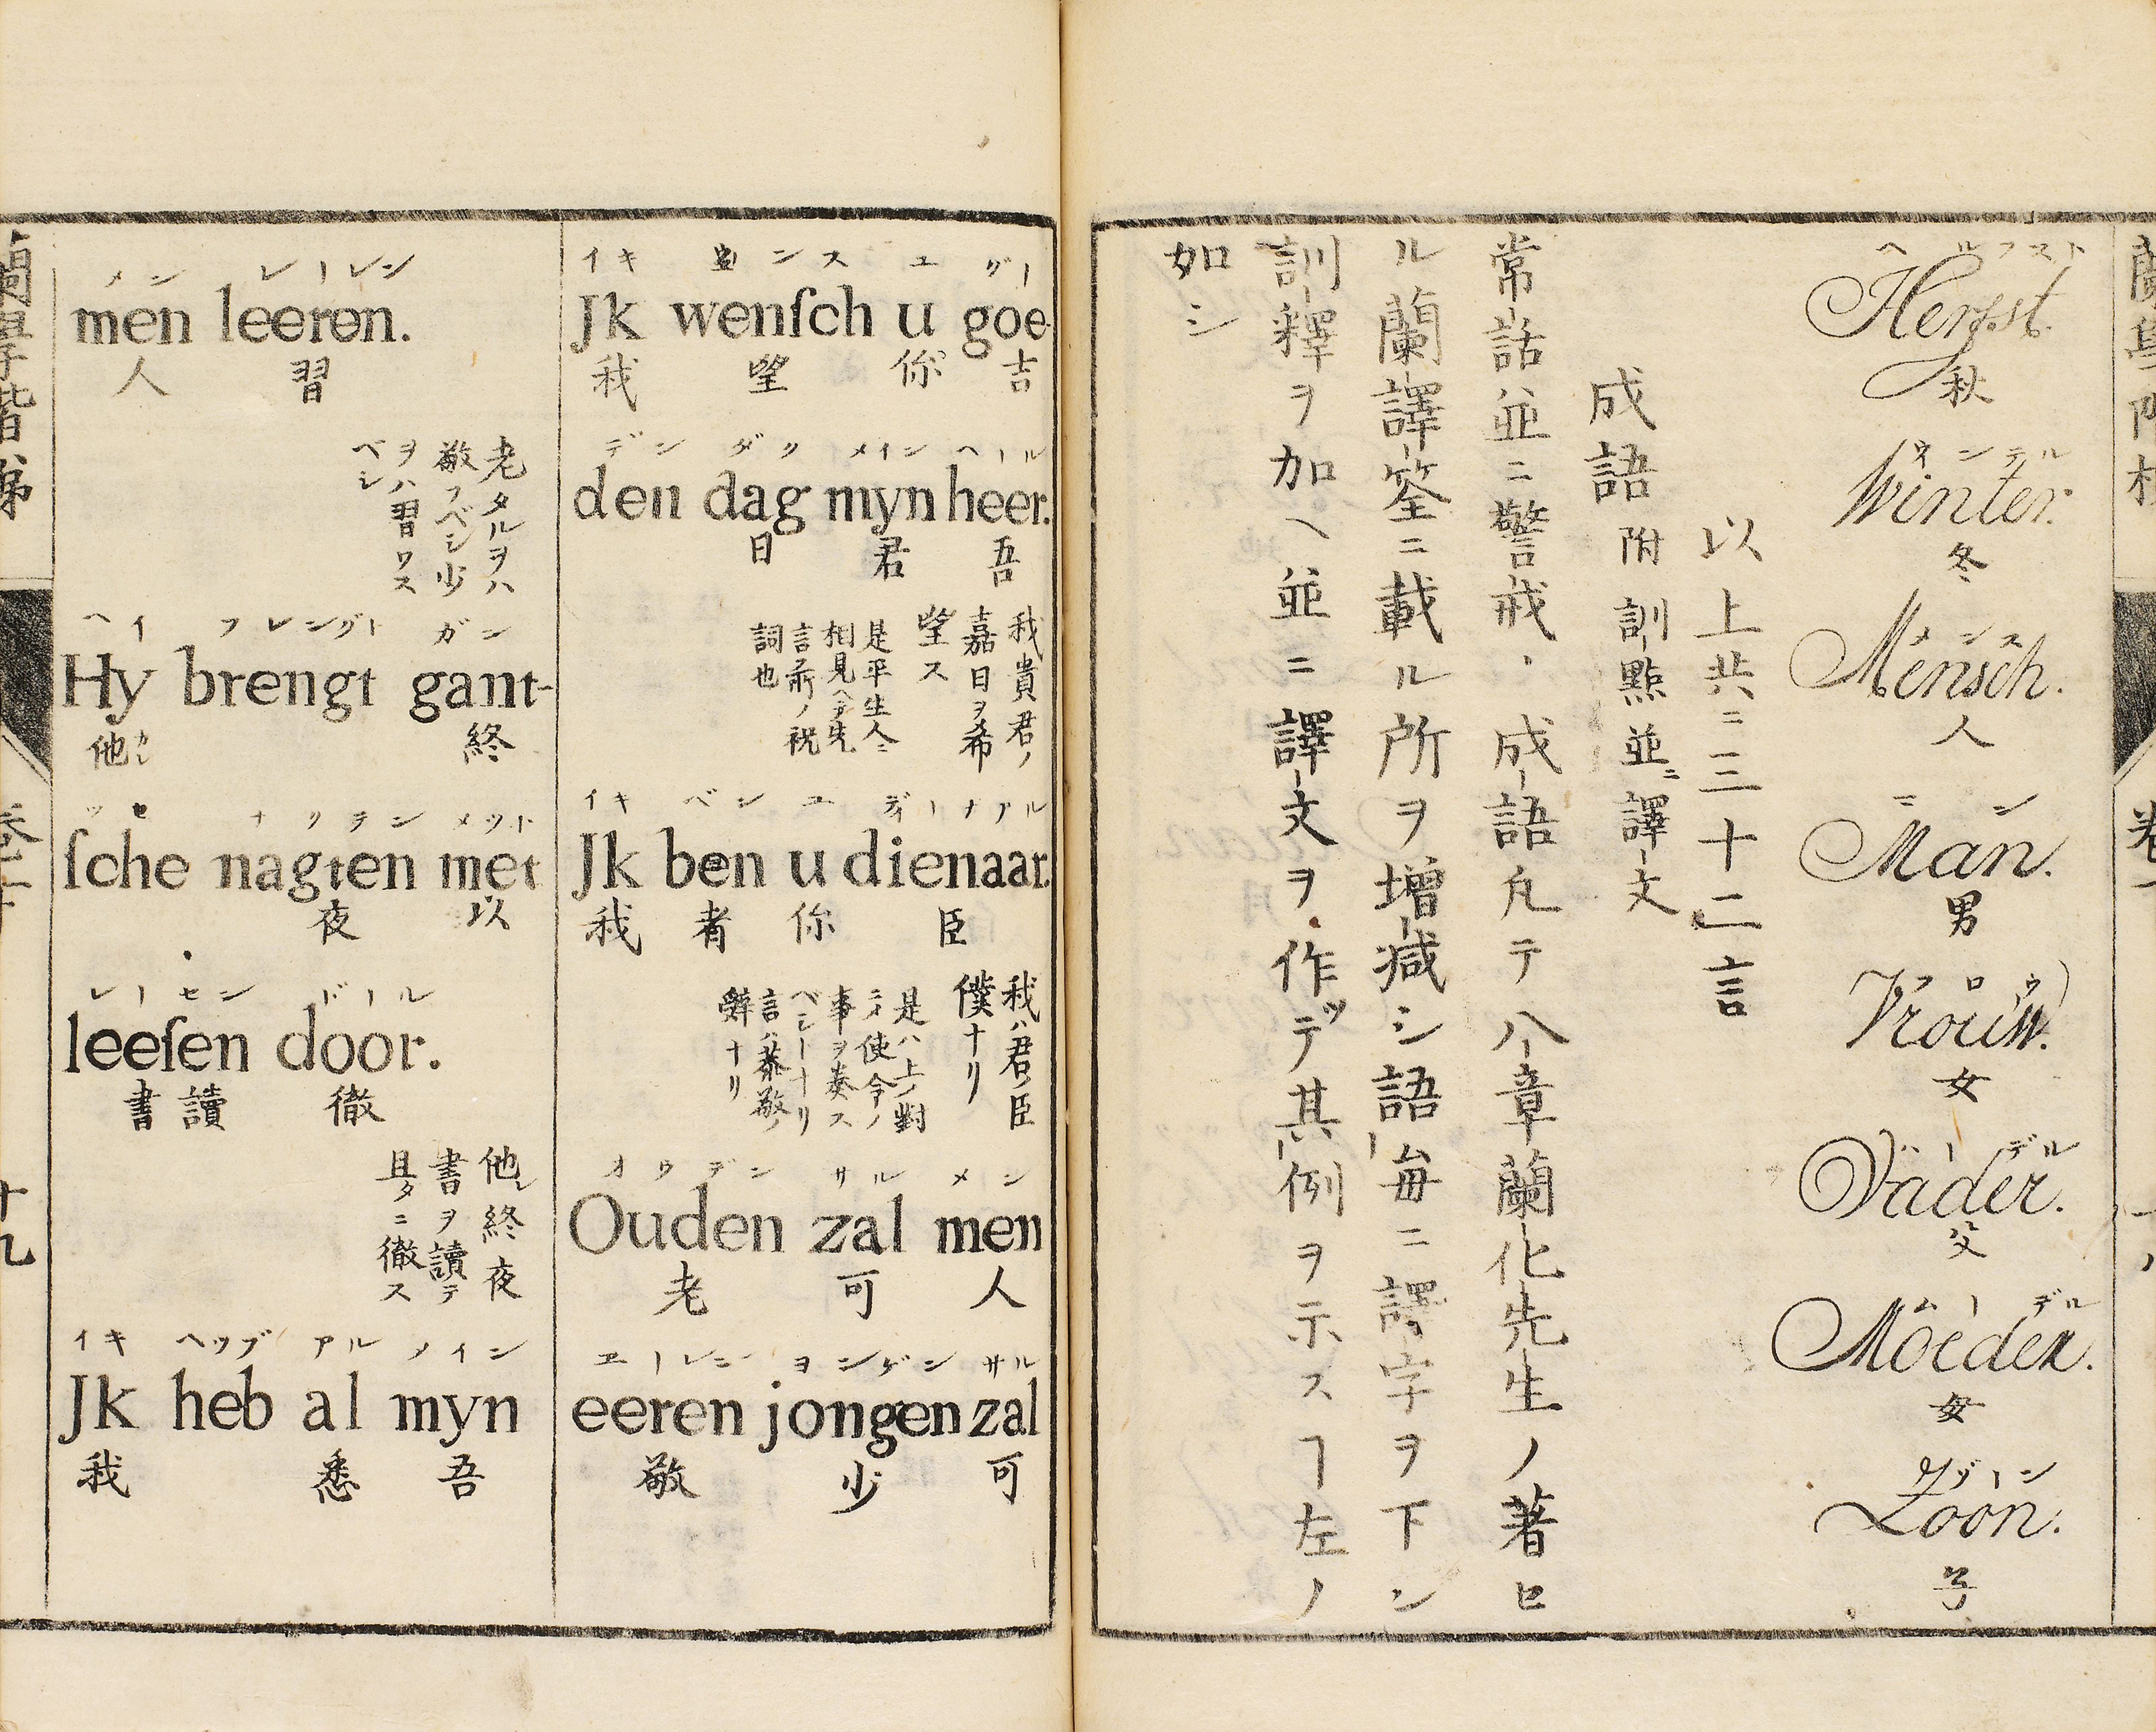 ヘルフスト
Herfst.
秋
ウインテル
Winter.
冬
メンス
Mensch.
人
マン
Man.
男
フロウ
Vrouw.
女
バーデル
Vader.
父
ムーデル
Moeder.
母
ゾーン
Zoon.
子
以上共ニ三十二言
成語 附訓點並ニ譯文
常話並ニ警戒、成語凡テ八章蘭化先生ノ著ヒ
ル蘭譯筌ニ載ル所ヲ增減シ語毎ニ譯字ヲ下シ
訓釋ヲ加ヘ並ニ譯文ヲ作ッテ其例ヲ示スヿ左ノ
如シ
イキ ウンス ユ グー
Jk wenſch u goe-
我 望 你 吉
デン ダク メイン ヘール
den dag myn heer.
日 君 吾
我貴君ノ
嘉日ヲ希
望ス
是平生人ニ
相見ヘテ先
言所ノ祝
詞也
イキ ベン ユ ディーナアル
Jk ben u dienaar.
我 者 你 臣
我ハ君ノ臣
僕ナリ
是ハ上ノ對
ニメ使令ノ
事ヲ奏ス
ベシーナリ
言ハ恭敬ノ
辭ナリ
オウデン サル メン
Ouden zal men
老 可 人
エーレン ヨンゲン サル
eeren jongen zal
敬 少 可
メン レーレン
men leeren.
人 習
老タルヲハ
敬フベシ少
ヲハ習ワス
ベシ
ヘイ フレングト ガン
Hy brengt gant-
他カレ 終
ッセ ナクテン メット
ſche nagten met
夜 以
レーセン ドール
leeſen door.
書讀 徹
他レ終夜
書ヲ讀テ
旦タニ徹ス
イキ ヘッブ アル メイン
Jk heb al myn
我 悉 吾
十九